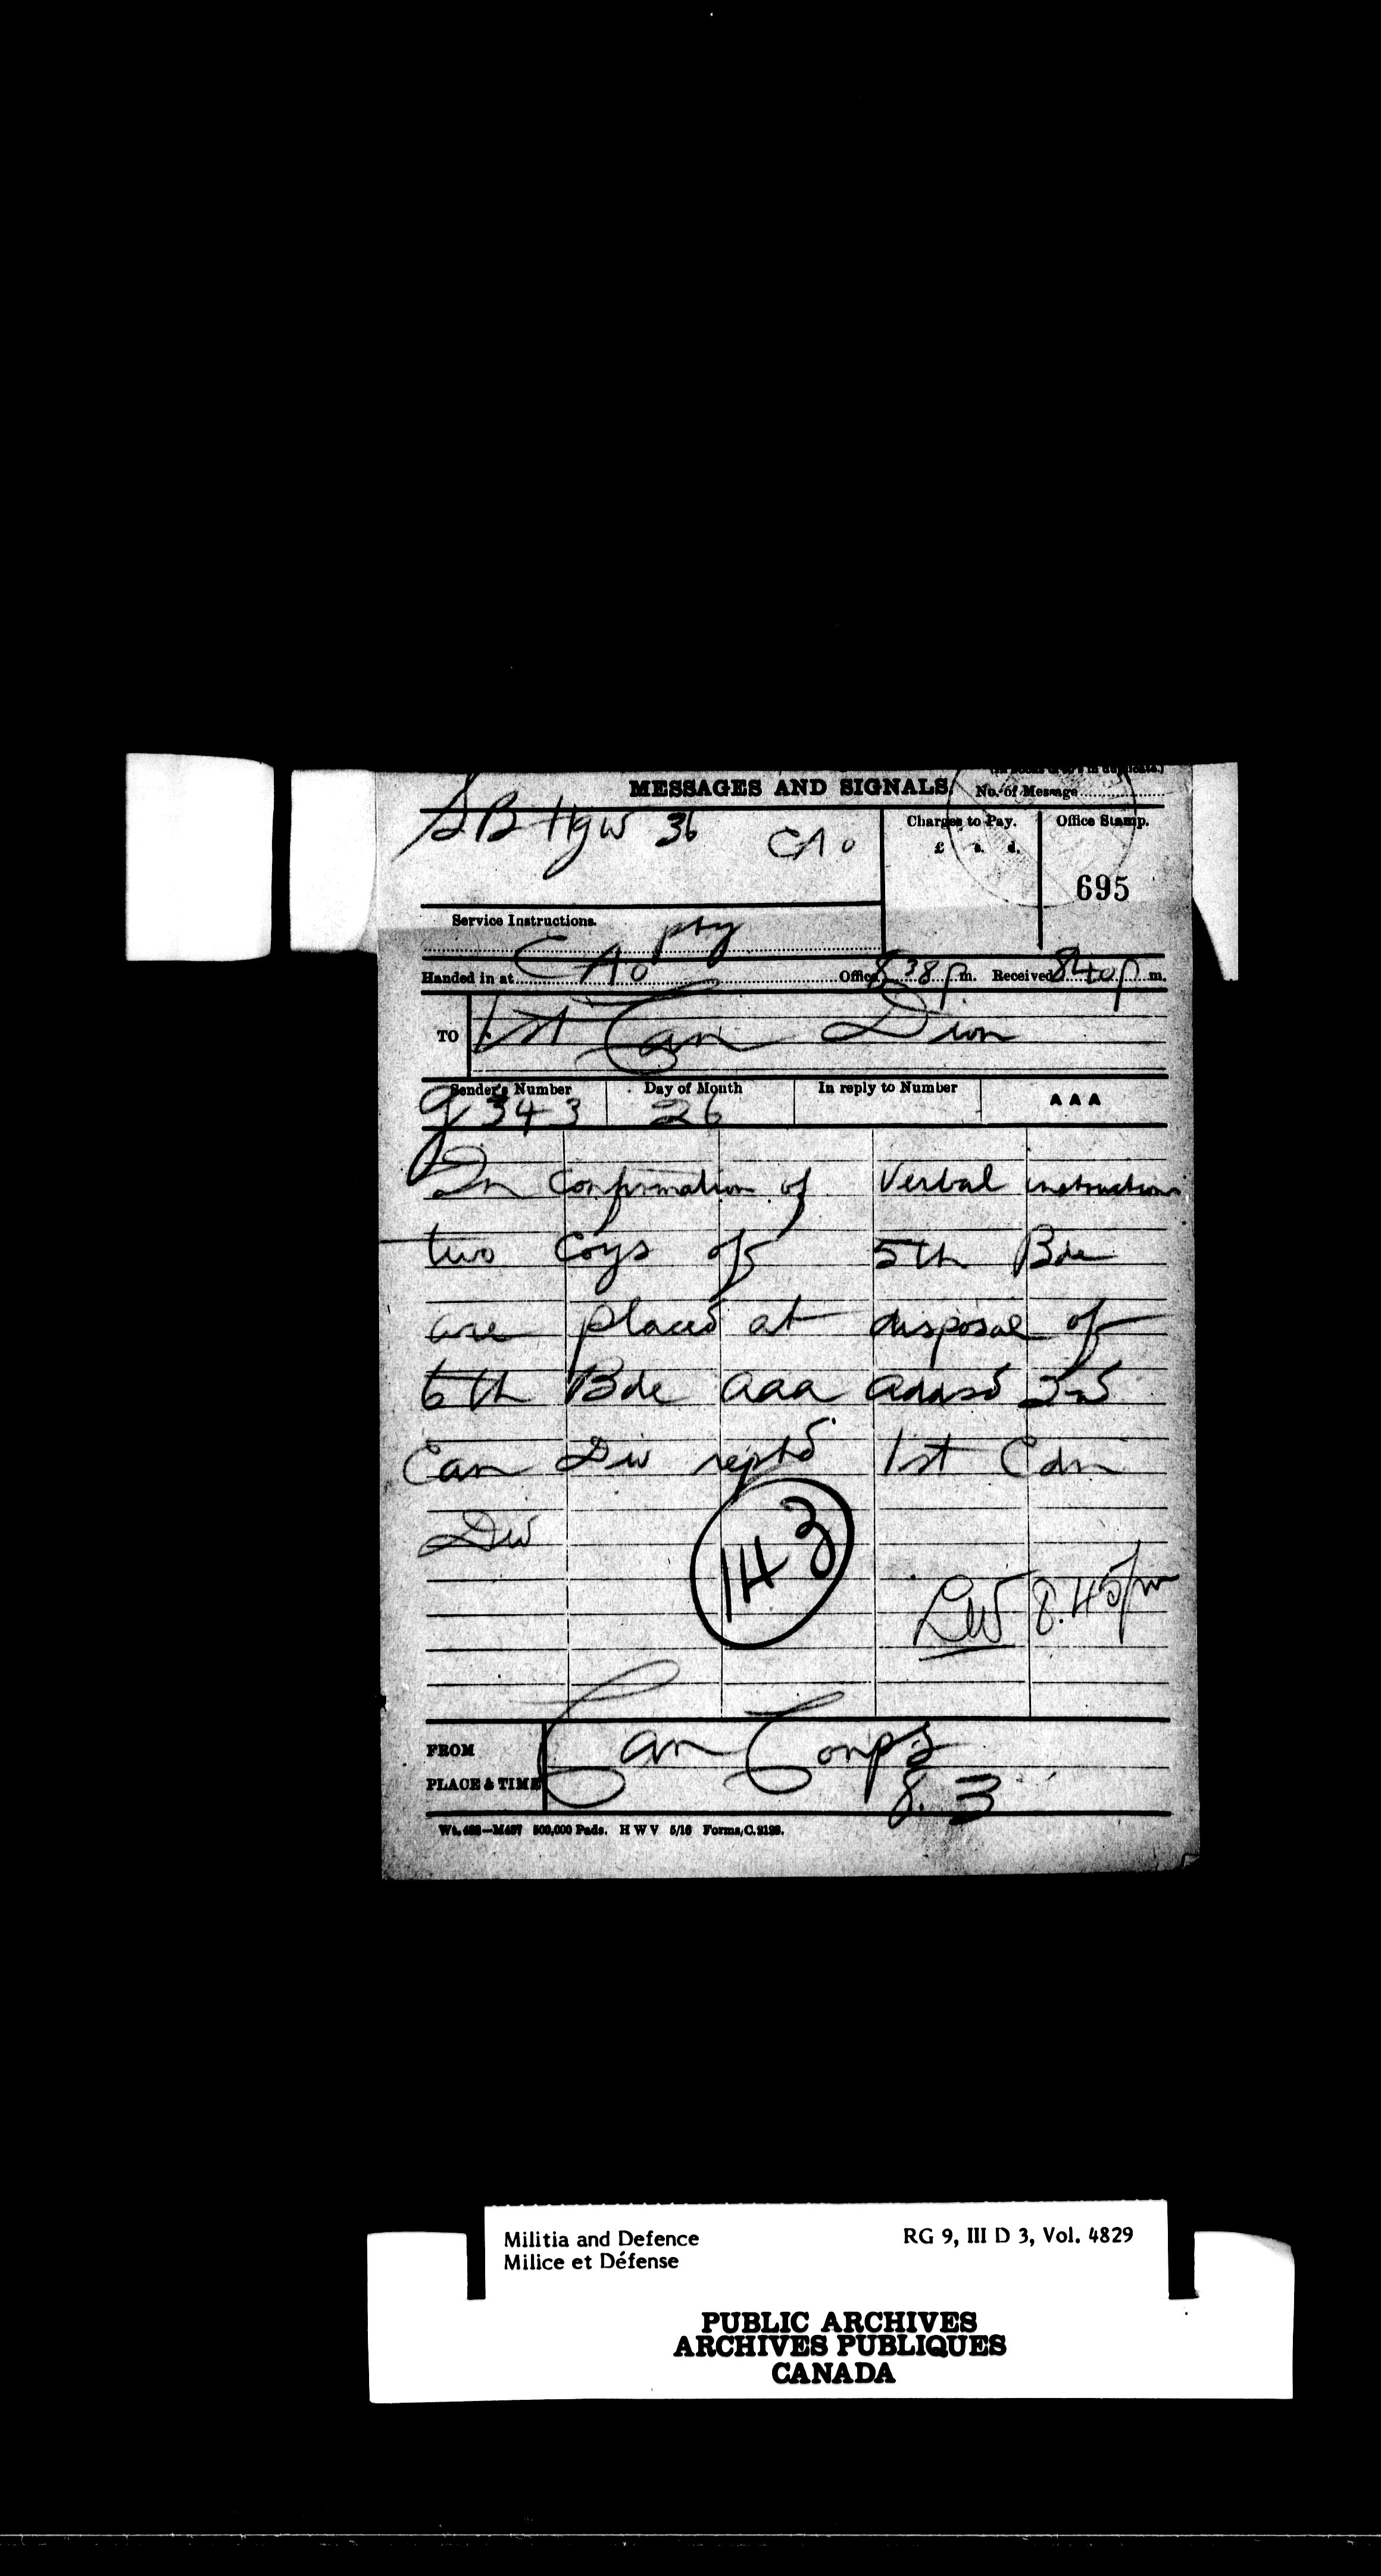 MESSAGES AND SIGNALS. No. of Message
SB Hgw 36 CAo
Charges to Pay. Office Stamp.
£ s. d.
695
Service Instructions.
pty
Handed in at CAo Office 8 38 p m. Received 8 40 p m.
TO 1st Can Divn
Sender's Number Day of Month In reply to Number AAA
g 343 26
In confirmation of verbal instructions
two coys of 5th Bde
are placed at disposal of
6th Bde aaa addsd 2nd
Can Div reptd 1st Cdn
Div
143
8.45 pm
FROM Can Corps
PLACE & TIME 8.3
500,000 Pads. H W V 5/16 Forms/C.2128.
Militia and Defence RG 9, III D 3, Vol. 4829
Milice et Défense
PUBLIC ARCHIVES
ARCHIVES PUBLIQUES
CANADA